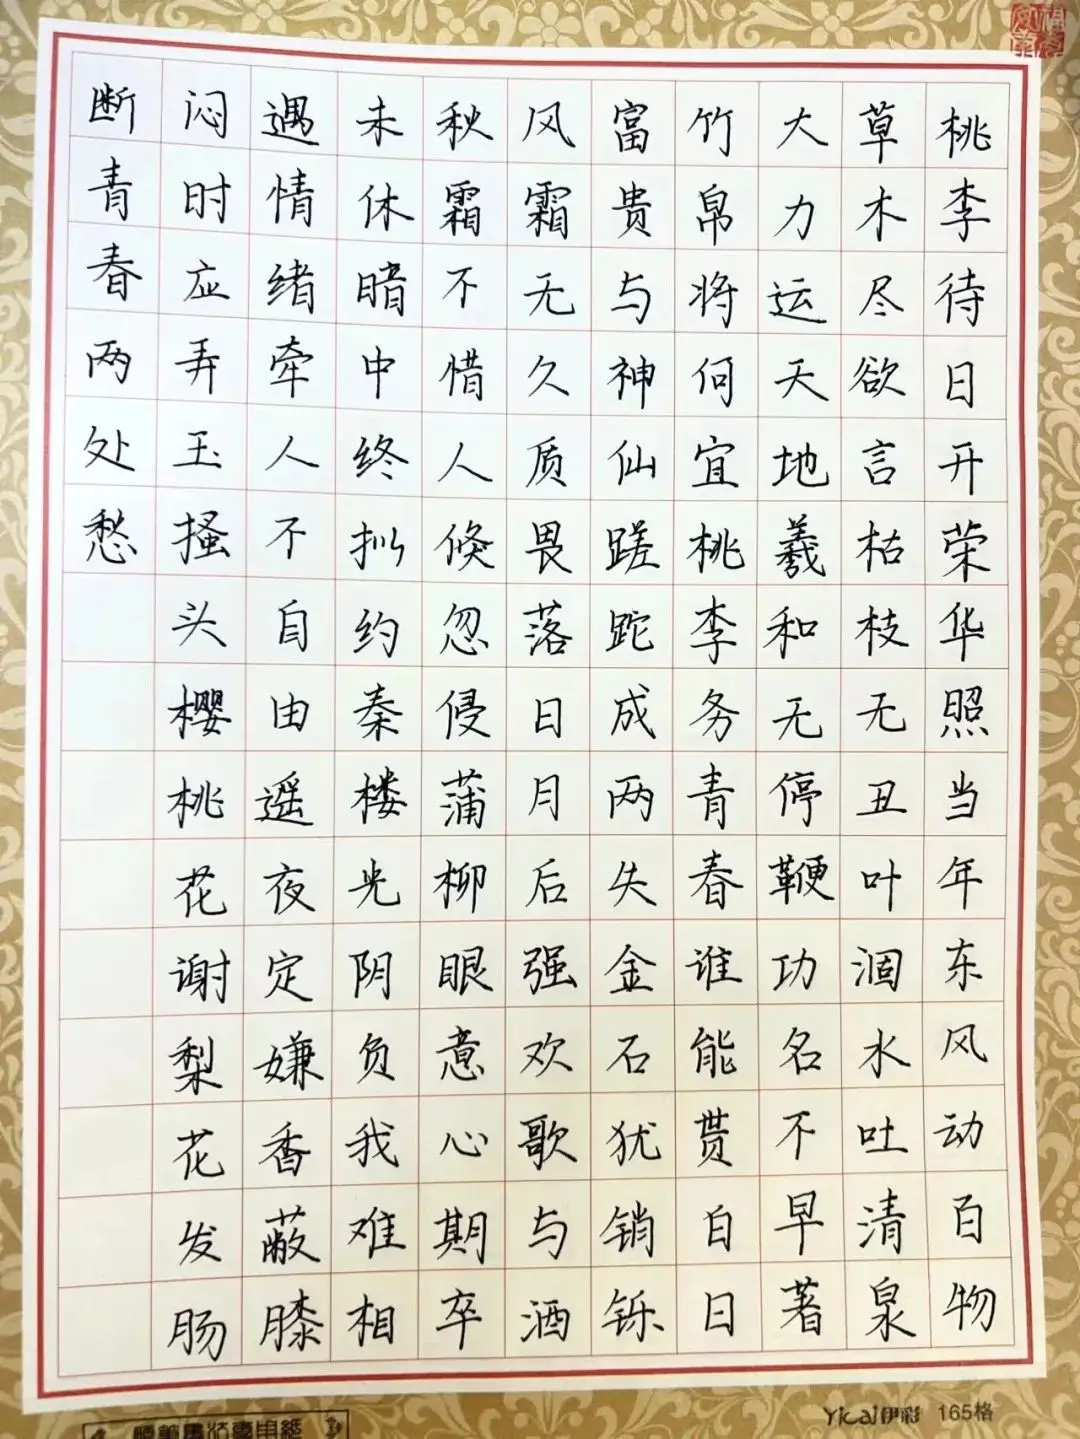 桃李待日开荣华照当年东风动百物
草木尽欲言枯枝无丑叶涸水吐清泉
大力运天地羲和无停鞭功名不早著
竹帛将何宜桃李务青春谁能贳白日
富贵与神仙蹉跎成两失金石犹销铄
风霜无久质畏落日月后强欢歌与酒
秋霜不惜人倏忽侵蒲柳眼意心期卒
未休暗中终拟约秦楼光阴负我难相
遇情绪牵人不自由遥夜定嫌香蔽膝
闷时应弄玉搔头樱桃花谢梨花发肠
断青春两处愁
Yical伊彩 165格